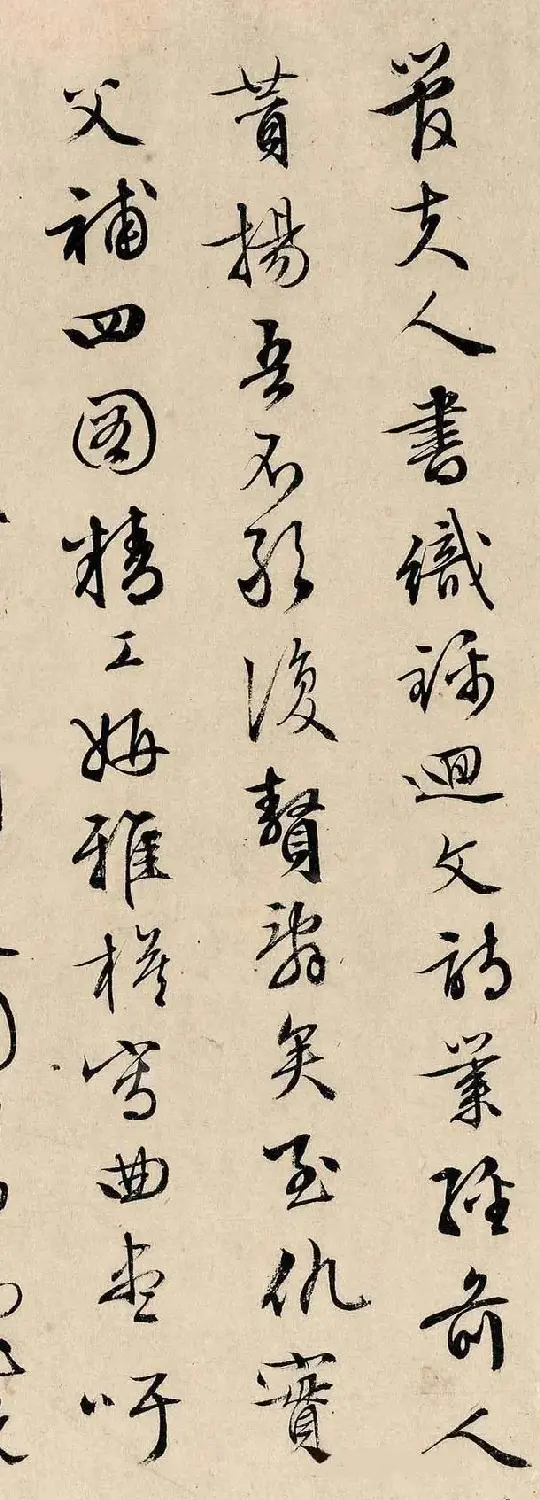 管夫人書織錦迴文詩業經前人
贊揚吾不能復贅辭矣至仇實
父補四圖精工妍雅模寫曲盡吁